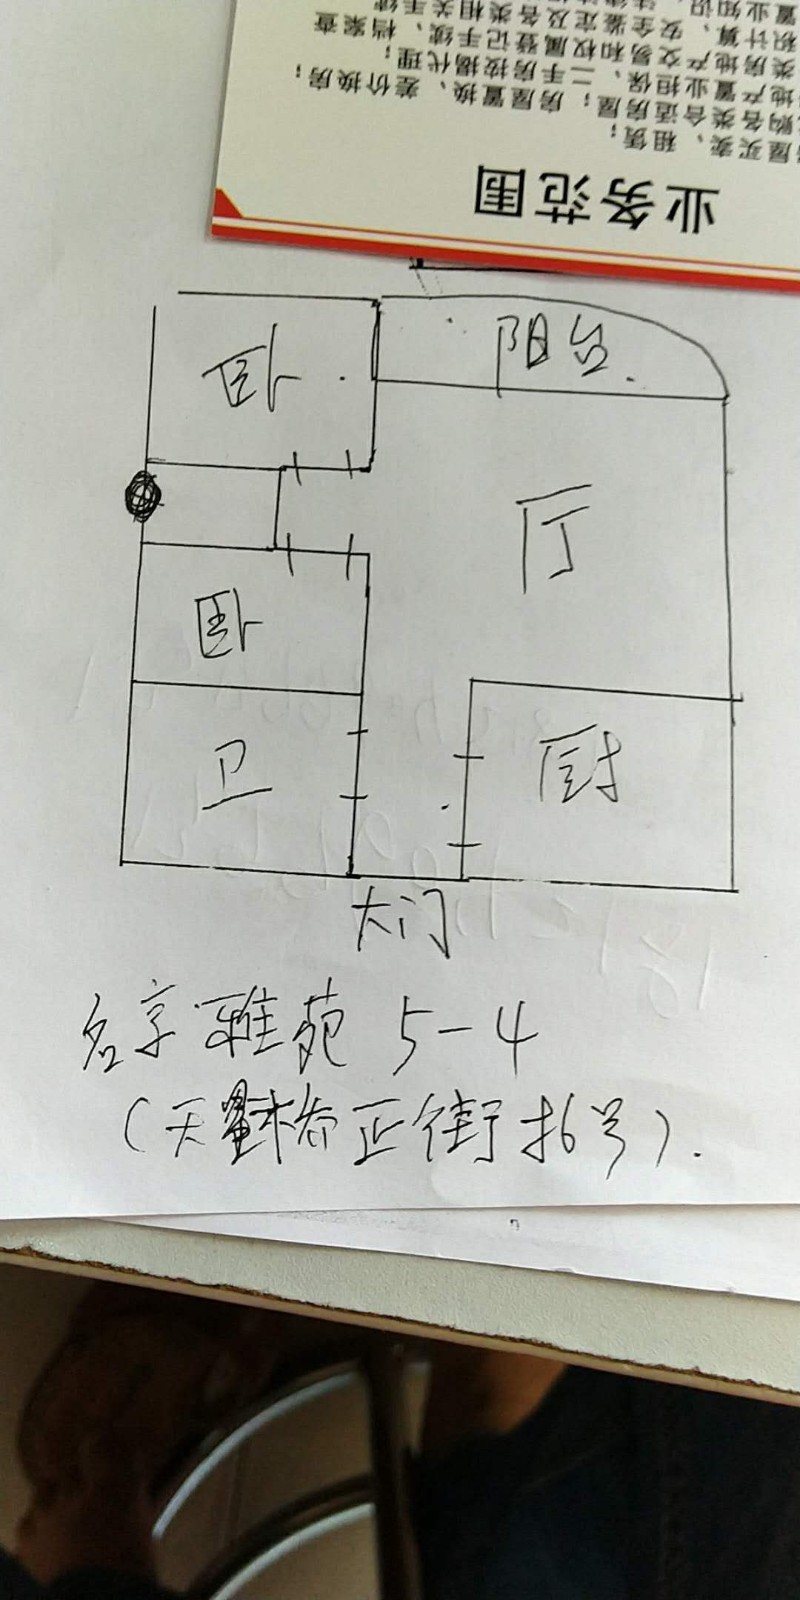 置业知识、法律
积计算、安全鉴定及各类相关手续
类房地产交易和权属登记手续、档案查
地产置业担保、二手房按揭代理；
购各类合适房屋；房屋置换、差价换房；
屋买卖、租赁；
业务范围
阳台
卧
厅
卧
卫
厨
大门
名字雅苑 5-4
(天星桥正街 16号).